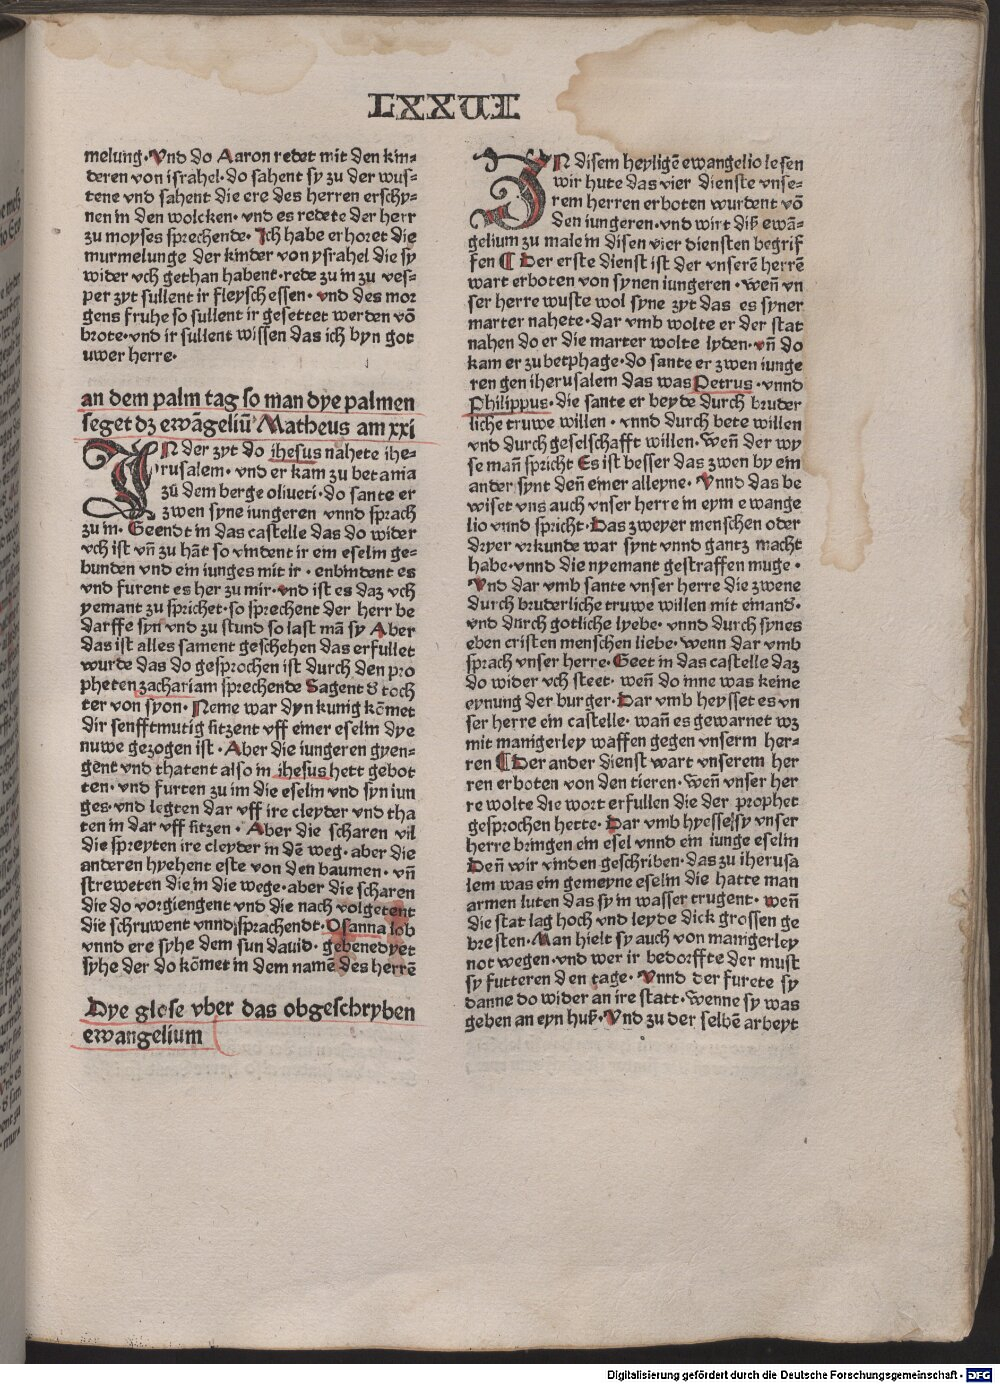 LXXVI
melung·Vnd do Aaron redet mit den kin-
deren von israhel·do sahent sy zu der wus-
tene vnd sahent die ere des herren erschy-
nen in den wolcken·vnd es redete der herr
zu moyses sprechende·Ich habe erhoret die
murmelunge der kinder von ysrahel die sy
wider vch gethan habent·rede zu in zu ves-
per zyt sullent ir fleysch essen·vnd des mor
gens fruhe so sullent ir gesettet werden vō
brote·vnd ir sullent wissen das ich byn got
uwer herre·
an dem palm tag so man dye palmen
seget dz ewāgeliū Matheus am xxi
IN der zyt do ihesus nahete ihe-
rusalem·vnd er kam zu betania
zū dem berge oliueti·do sante er
zwen syne iungeren vnnd sprach
zu in·Geendt in das castelle das do wider
vch ist vn̄ zu hāt so vindent ir ein eselin ge-
bunden vnd ein iunges mit ir·enbindent es
vnd furent es her zu mir·vnd ist es daz vch
yemant zu sprichet·so sprechent der herr be
darffe syn vnd zu stund so last mā sy Aber
das ist alles sament geschehen das erfullet
wurde das do gesprochen ist durch den pro
pheten zachariam sprechende Sagent d̕ toch
ter von syon·Neme war dyn kunig kōmet
dir senfftmutig sitzent vff einer eselin dye
nuwe gezogen ist·Aber die iungeren gyen-
gent vnd thatent also in ihesus hett gebot
ten·vnd furten zu im die eselin vnd syn iun
ges·vnd legten dar vff ire cleyder vnd tha
ten in dar vff sitzen·Aber die scharen vil
die spreyten ire cleyder in dē weg·aber die
anderen hyehent este von den baumen·vn̄
streweten die in die wege·aber die scharen
die do vorgiengent vnd die nach volgetent
die schruwent vnnd sprachendt·Osanna lob
vnnd ere syhe dem sun dauid·gebenedyet
syhe der do kōmet in dem namē des herrē
Dye glose vber das obgeschryben
ewangelium
IN disem heyligē ewangelio lesen
wir hute das vier dienste vnse-
rem herren erboten wurdent vō
den iungeren·vnd wirt diß ewā-
gelium zu male in disen vier diensten begrif
fen ¶ Der erste dienst ist der vnserē herrē
wart erboten von synen iungeren·Wen̄ vn
ser herre wuste wol syne zyt das es syner
marter nahete·dar vmb wolte er der stat
nahen do er die marter wolte lyden·vn̄ do
kam er zu betphage·do sante er zwen iunge
ren gen iherusalem das was Petrus·vnnd
Philippus·die sante er beyde durch bruder
liche truwe willen·vnnd durch bete willen
vnd durch geselschafft willen·Wen̄ der wy
se man̄ spricht Es ist besser das zwen by ein
ander synt den̄ einer alleyne·Vnnd das be
wiset vns auch vnser herre in eym ewange
lio vnnd spricht·Das zweyer menschen oder
dryer vrkunde war synt vnnd gantz macht
habe·vnnd die nyemant gestraffen muge·
Vnd dar vmb sante vnser herre die zwene
durch bruderliche truwe willen mit einand̕·
vnd durch gotliche lyebe·vnnd durch synes
eben cristen menschen liebe·wenn dar vmb
sprach vnser herre·Geet in das castelle daz
do wider vch steet·wen̄ do inne was keine
eynung der burger·Dar vmb heysset es vn
ser herre ein castelle·wan̄ es gewarnet wz
mit manigerley waffen gegen vnserm her-
ren ¶ Der ander dienst wart vnserem her
ren erboten von den tieren·Wen̄ vnser her
re wolte die wort erfullen die der prophet
gesprochen hette·Dar vmb hyesse sy vnser
herre bringen ein esel vnnd ein iunge eselin
Den̄ wir vinden geschriben·das zu iherusa
lem was ein gemeyne eselin die hatte man
armen luten das sy in wasser trugent·wen̄
die stat lag hoch vnd leyde dick grossen ge
bresten·Man hielt sy auch von manigerley
not wegen·vnd wer ir bedorffte der must
sy futteren den tage·Vnnd der furete sy
danne do wider an ire statt·Wenne sy was
geben an eyn huß·Vnd zu der selbē arbeyt
Digitalisierung gefördert durch die Deutsche Forschungsgemeinschaft - DFG